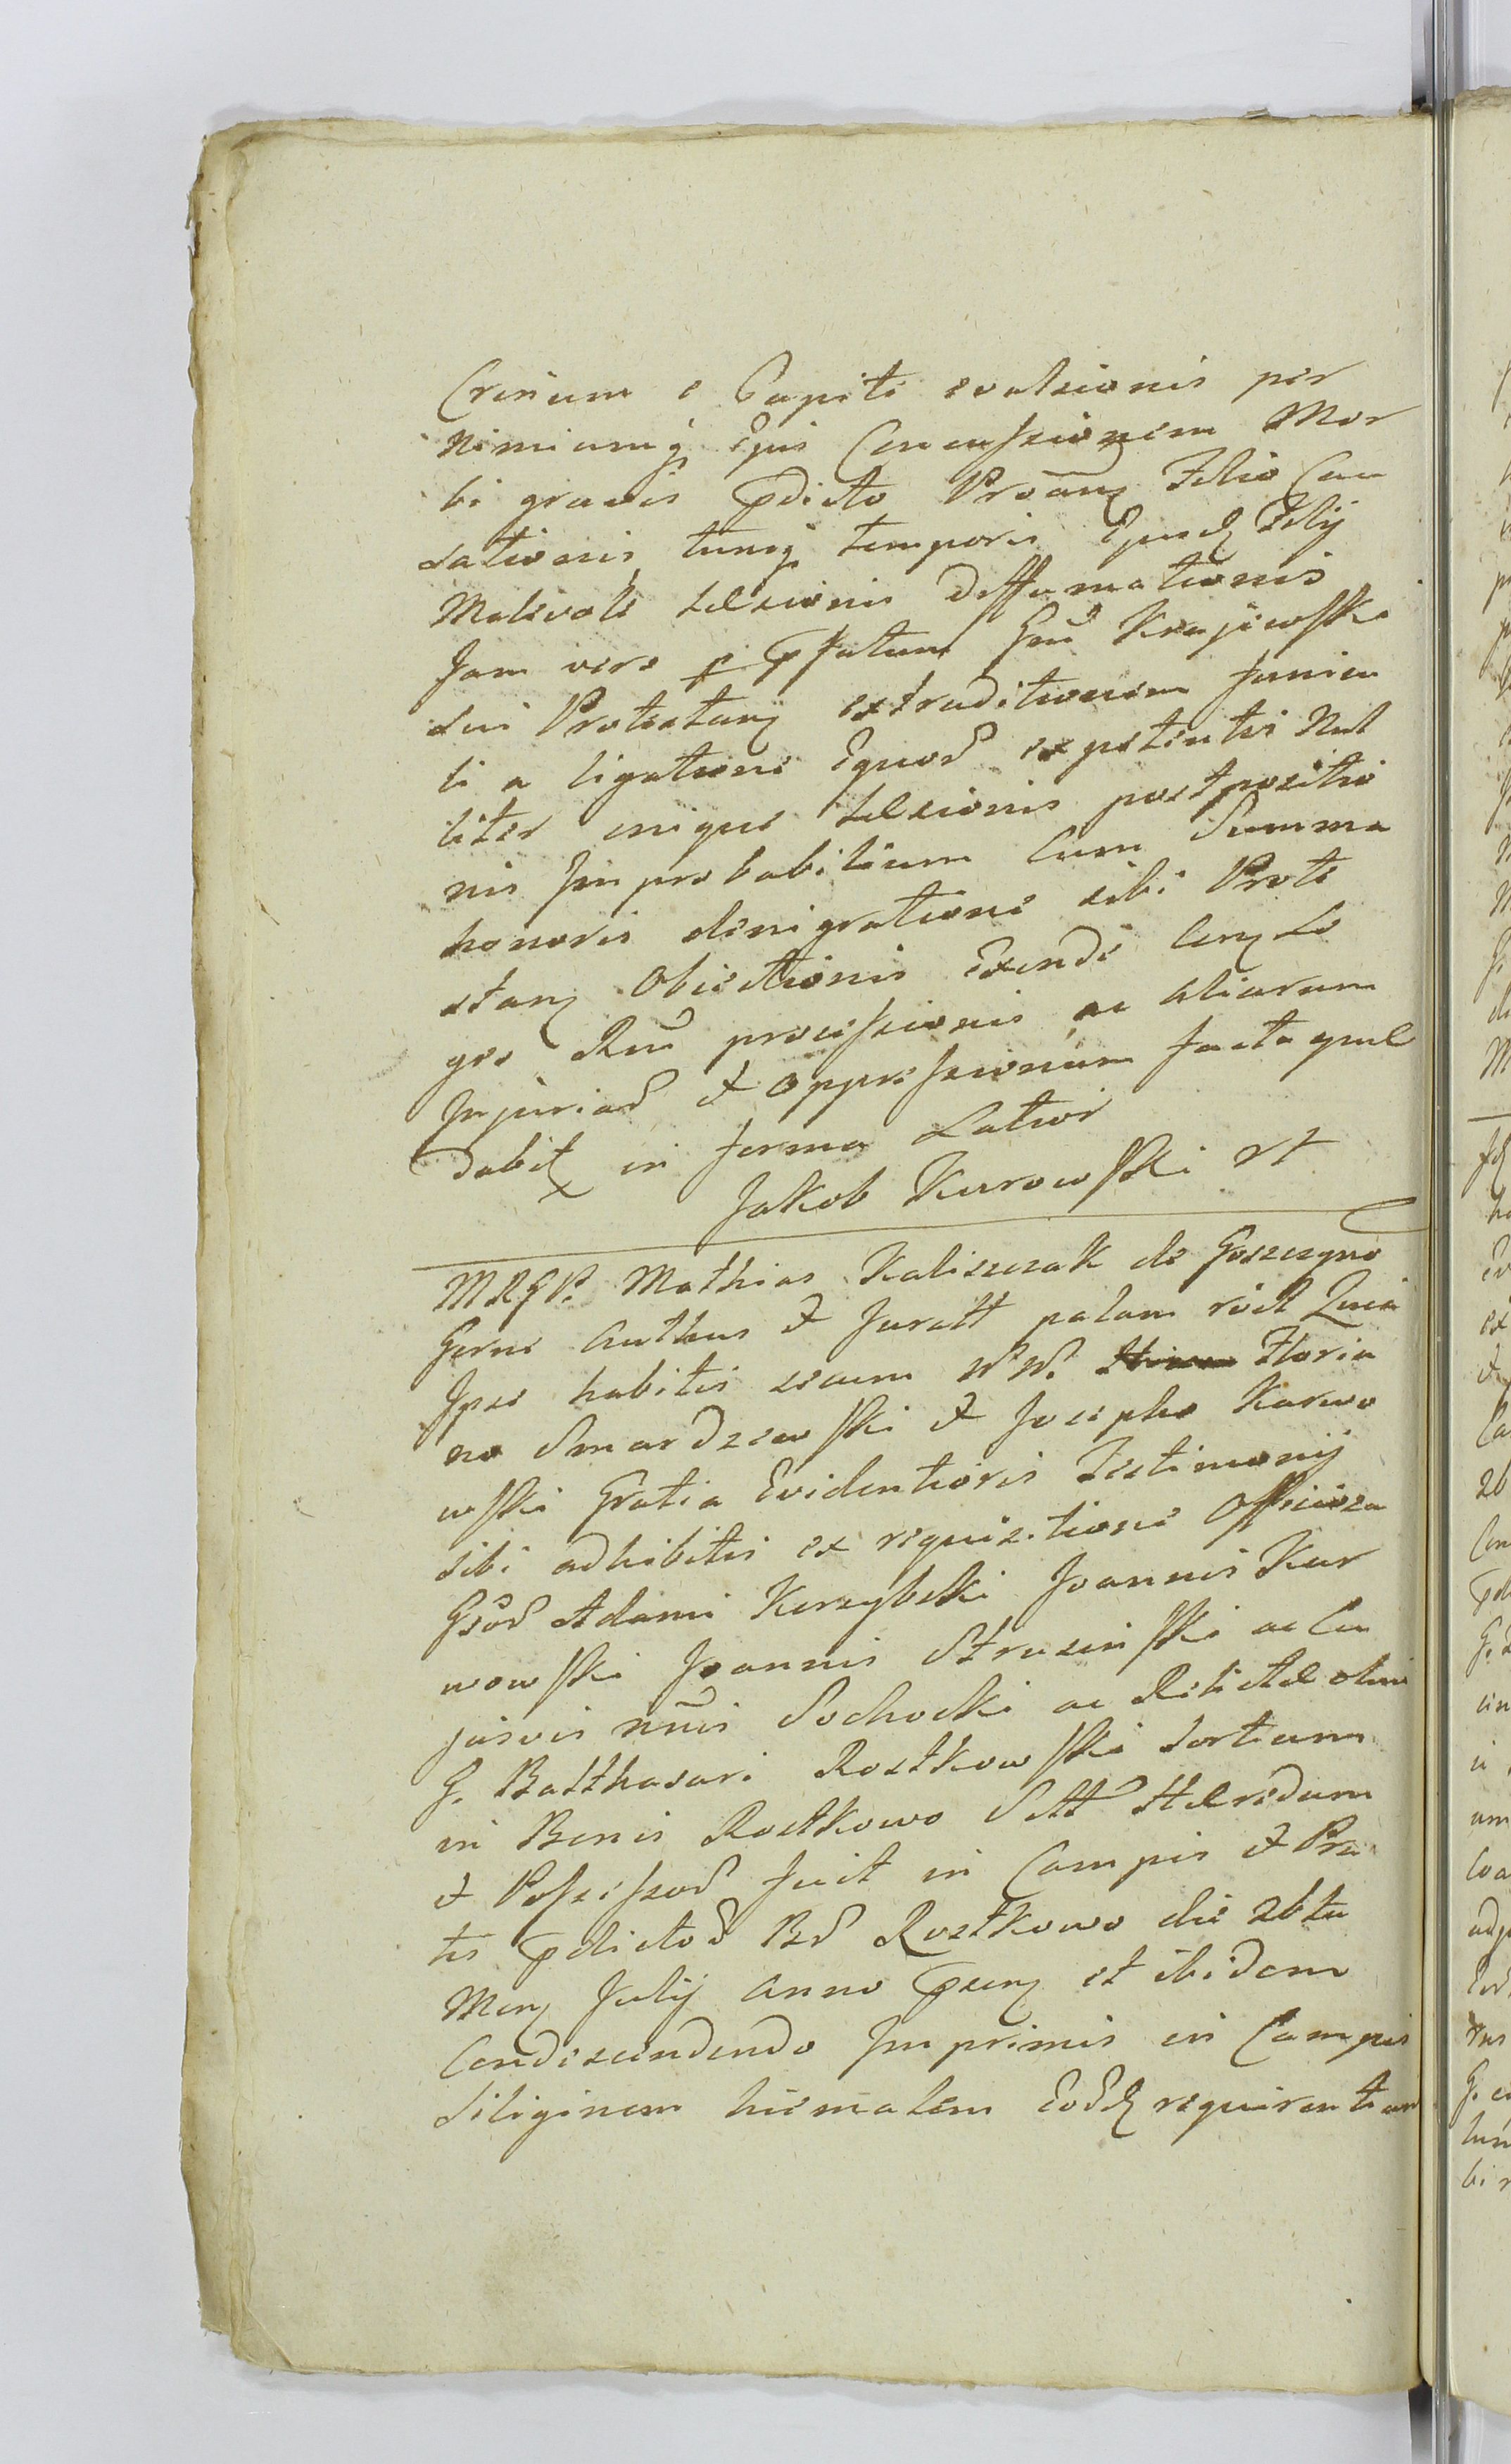 Crinium e Capite evulsionis per
nimiamq ejus Concussionem Mor
bi gravis pdicto Proang Filio Cau
sationis tunq temporis Ejusd Filij
Malevole Lesionis Deffamationis
Jam vero p pfatum Gnu Krajewski
sui Protestang extraditionem funicu
li a ligatione Equor expetentis Nul
liter cuique Lesionis postpositio
nis Improbabilium Cum Summa
honoris denigratione sibi Prote
stang Obiectionis Exinde Cung Le
gre Reu processionis ac Aliarum
Injuriar et oppressionum facta quel
dabit in forma Latiori
Jakob Kurowski
MRGP. Mathias Kaliszczak de Goszczyno
Gerne Authus et Juratt palam rect Quia
Ipse habitis secum NN. Floria
no Smardzewski et Josepho Karwo
wski Gratia Evidentioris Testimonij
sibi adhibitis ex requisitione Officiosa
Gsor Adami Kerzybski Joannis Kur
wowski Joannis Strusinski ac Cu
jusvis nuis Sochocki ac Relictae olim
G. Balthasari Rostkowski sortium
in Bonis Rostkowo Sitt Haeredum
et Possessor fuit in Campis et Pra
tis pdictor Br Rostkowo die 26ta
Mens Julij Anno psen et ibidem
Condescendendo Imprimis in Campis
siliginem hiemalem Eord requirentium